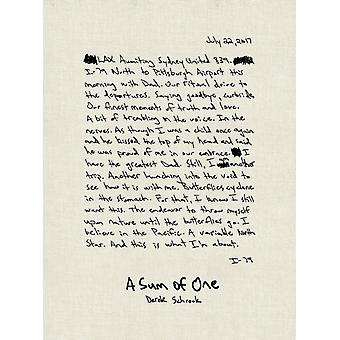 July 22, 2017
LAX Awaiting Sydney United 839.
I-79 North to Pittsburgh Airport this
morning with Dad. Our ritual drive to
the departures. Saying goodbye, curbside.
Our finest moments of truth and love.
A bit of trembling in the voice. In the
nerves. As though I was a child once again
and he kissed the top of my head and said
he was proud of me in our embrace. I
have the greatest Dad. Still, I another
trip. Another launching into the void to
see how it is with me. Butterflies cyclone
in the stomach. For that, I know I still
want this. The endeavor to throw myself
upon nature until the butterflies go. I
believe in the Pacific. A variable North
Star. And this is what I'm about.
I-79
A Sum of One
Derek Schrock